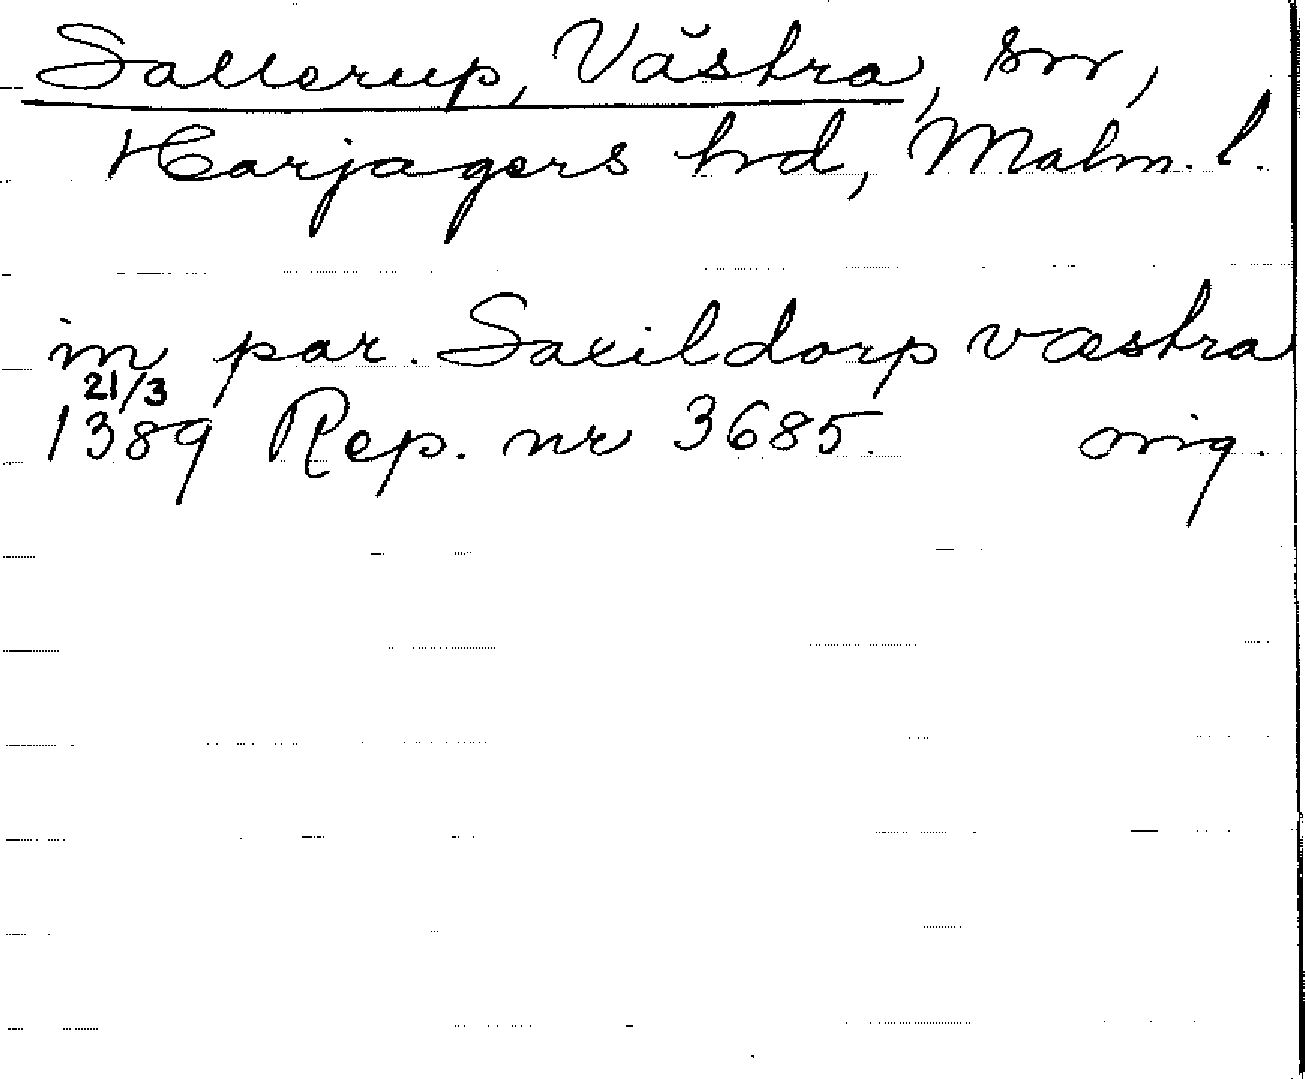 Sallerup, Västra, sn,
Harjagers hd, Malm. l.
in par. Saxildorp væstra
21/3
1389 Rep. nr 3685. orig.